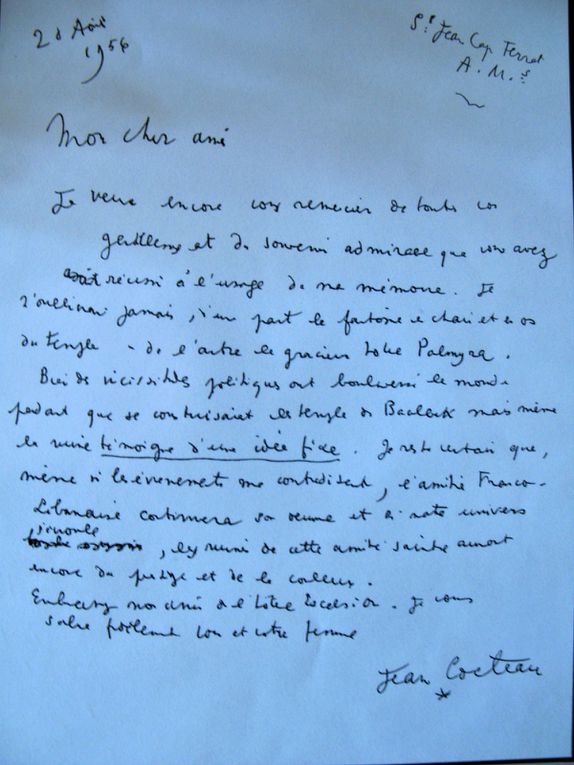 Août
1956
St Jean Cap Ferrat
A. M.s
Mon cher ami
Je veux encore vous remercier de toutes vos
gentillesses et du souvenir admirable que vous avez
réussi à l'usage de ma mémoire. Je
n'oublierai jamais, d'une part le fantôme de chair et d'os
du temple - de l'autre le gracieux hôtel Palmyra.
Bien des vicissitudes politiques ont bouleversé le monde
pendant que se construisait les temple de Baalbek mais même
la ruine témoigne d'une idée fixe. Je reste certain que,
même si les évènements me contredisent, l'amitié Franco-
Libanaise continuera son œuvre et si notre univers
s'écroule, les ruines de cette amitié sainte auront
encore du prestige et de la couleur.
Embrassez nos amis de l'hôtel Excelsior. Je vous
salue et votre femme
Jean Cocteau